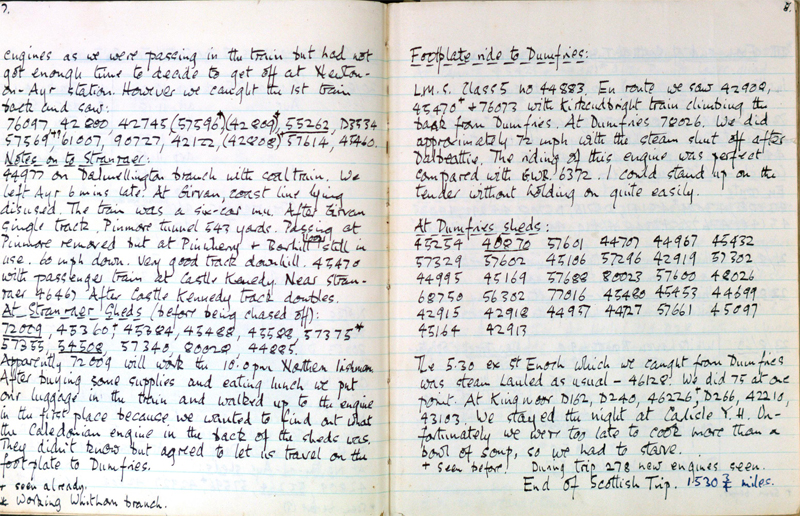 7.
engines as we were passing in the train but had not
got enough time to decide to get off at Newton-
on-Ayr station. However we caught the 1st train
back and saw:
76097, 42800, 42745, (57596+)(42809+) 55262, D3534
57569, 61007, 90727, 42122, (42808)+ 57614, 45460.
Notes on to Stranraer:
44977 on Dalmellington branch with coal train. We
left Ayr 6 mins late. At Girvan, coast line lying
disused. The train was a six-car mu. After Girvan
single track. Pinmore tunnel 543 yards. Passing at
Pinmore removed but at Pinwherry + Barrhill loops still in
use. 60 mph down. Very good track downhill. 45470
with passenger train at Castle Kenedy. Near Stran-
raer 46467 After Castle Kennedy track doubles.
At Stranraer Sheds (before being chased off):
72009, 45360+, 45384, 45488, 45588, 57375*
57355 54508, 57340, 80028, 44885.
Apparently 72009 will work the 10.0pm Northern Irishman
After buying some supplies and eating lunch we put
our luggage in the train and walked up to the engine
in the first place because we wanted to find out what
the Caledonian engine in the back of the sheds was.
They didn't know but agreed to let us travel on the
footplate to Dumfries.
+ seen already.
* Working Whithorn branch.
8.
Footplate ride to Dumfries:
L.M.S. Class 5 no 44883. En route we saw 42908,
45470+ & 76073 with Kirkcudbright train climbing the
bank from Dumfries. At Dumfries 78026. We did
approximately 72 mph with the steam shut off after
Dalbeattie. The riding of this engine was perfect
compared with GWR 6372. I could stand up on the
tender without holding on quite easily.
At Dumfries sheds:
45254 40870 57601 44707 44967 45432
57329 57602 45106 57296 42919 57302
44995 45169 57688 80023 57600 48026
68750 56302 77016 45480 45453 44699
42915 42918 44957 44727 57661 45097
45164 42913
The 5.30 ex St Enoch which we caught from Dumfries
was steam hauled as usual - 46128! We did 75 at one
point. At Kingmoor D162, D240, 46226+, D266, 42210,
43103. We stayed the night at Carlisle Y.H. Un-
fortunately we were too late to cook more than a
bowl of soup, so we had to starve.
+ seen before. During trip 278 new engines seen.
End of Scottish Trip. 1530 ¾ miles.